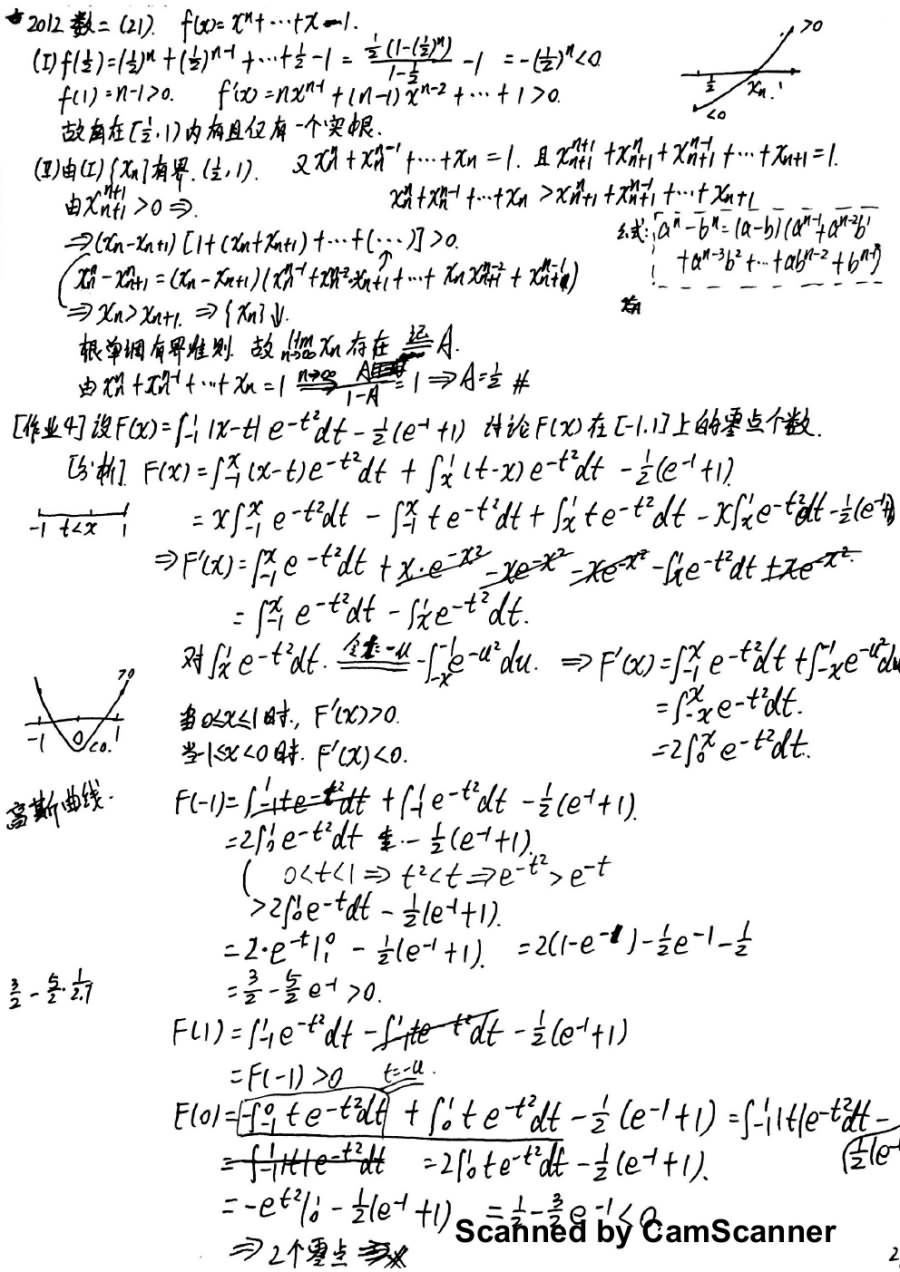 ★2012数二(21). f(x)=xⁿ+⋯+x-1.
(I) f(½)=(½)ⁿ+(½)ⁿ⁻¹+⋯+½-1 = ½(1-(½)ⁿ)/(1-½) - 1 = -(½)ⁿ<0. >0
f(1)=n-1>0. f'(x)=nxⁿ⁻¹+(n-1)xⁿ⁻²+⋯+1>0. ½ xₙ 1 <0
故 在[½,1)内有且仅有一个实根.
(II)由(I){xₙ}有界.(½,1). 又xₙⁿ+xₙⁿ⁻¹+⋯+xₙ=1. 且xₙ₊₁ⁿ⁺¹+xₙ₊₁ⁿ+xₙ₊₁ⁿ⁻¹+⋯+xₙ₊₁=1.
由xₙ₊₁ⁿ⁺¹>0 ⇒. xₙⁿ+xₙⁿ⁻¹+⋯+xₙ>xₙ₊₁ⁿ+xₙ₊₁ⁿ⁻¹+⋯+xₙ₊₁
公式: aⁿ-bⁿ=(a-b)(aⁿ⁻¹+aⁿ⁻²b¹
+aⁿ⁻³b²+⋯+abⁿ⁻²+bⁿ⁻¹)
⇒(xₙ-xₙ₊₁)[1+(xₙ+xₙ₊₁)+⋯+(⋯)]>0.
xₙⁿ-xₙ₊₁ⁿ=(xₙ-xₙ₊₁)(xₙⁿ⁻¹+xₙⁿ⁻²xₙ₊₁+⋯+xₙxₙ₊₁ⁿ⁻²+xₙ₊₁ⁿ⁻¹)
⇒xₙ>xₙ₊₁. ⇒{xₙ}↓.
根单调有界准则. 故 lim n→∞ xₙ存在 记= A.
由xₙⁿ+xₙⁿ⁻¹+⋯+xₙ=1 n→∞⇒ A/(1-A)=1⇒A=½ #
[作业4]设F(x)=∫₋₁¹|x-t|e^(-t²)dt-½(e⁻¹+1) 讨论F(x)在[-1.1]上的零点个数.
[分析] F(x)=∫₋₁ˣ(x-t)e^(-t²)dt+∫ₓ¹(t-x)e^(-t²)dt-½(e⁻¹+1).
-1 t<x 1
=x∫₋₁ˣe^(-t²)dt-∫₋₁ˣte^(-t²)dt+∫ₓ¹te^(-t²)dt-x∫ₓ¹e^(-t²)dt-½(e⁻¹+1)
⇒F'(x)=∫₋₁ˣe^(-t²)dt+x·e^(-x²)-xe^(-x²)-xe^(-x²)-∫ₓ¹e^(-t²)dt+xe^(-x²).
=∫₋₁ˣe^(-t²)dt-∫ₓ¹e^(-t²)dt.
对∫ₓ¹e^(-t²)dt. 令t=-u = -∫₋ₓ⁻¹e^(-u²)du. ⇒F'(x)=∫₋₁ˣe^(-t²)dt+∫₋ₓ⁻¹e^(-u²)du
=∫₋ₓˣe^(-t²)dt.
=2∫₀ˣe^(-t²)dt.
>0 -1 0 <0. 1
当0<x≤1时, F'(x)>0.
当-1≤x<0时. F'(x)<0.
高斯曲线.
F(-1)=∫₋₁¹te^(-t²)dt+∫₋₁¹e^(-t²)dt-½(e⁻¹+1).
=2∫₀¹e^(-t²)dt-½(e⁻¹+1).
( 0<t<1⇒t²<t⇒e^(-t²)>e^(-t)
>2∫₀¹e^(-t)dt-½(e⁻¹+1).
=2·e^(-t)|₁⁰-½(e⁻¹+1). =2(1-e⁻¹)-½e⁻¹-½
=3/2-5/2e⁻¹>0.
3/2-5/2·1/2.7
F(1)=∫₋₁¹e^(-t²)dt-∫₋₁¹te^(-t²)dt-½(e⁻¹+1)
=F(-1)>0 t=-u.
F(0)=-∫₋₁⁰te^(-t²)dt+∫₀¹te^(-t²)dt-½(e⁻¹+1)=∫₋₁¹|t|e^(-t²)dt-
½(e⁻
=∫₋₁¹|t|e^(-t²)dt =2∫₀¹te^(-t²)dt-½(e⁻¹+1).
=-e^(t²)|₀¹-½(e⁻¹+1) =½-3/2e⁻¹<0
⇒2个零点
Scanned by CamScanner